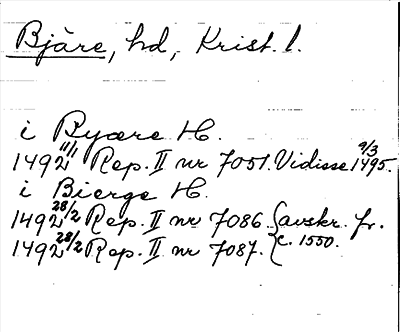 Bjäre, hd, Krist. l.
i Byære H.
1492 11/1 Rep. II nr 7051. Vidisse 9/3 1495.
i Bierge H.
1492 28/2 Rep. II nr 7086. {avskr. fr.
1492 28/2 Rep. II nr 7087. {c. 1550.